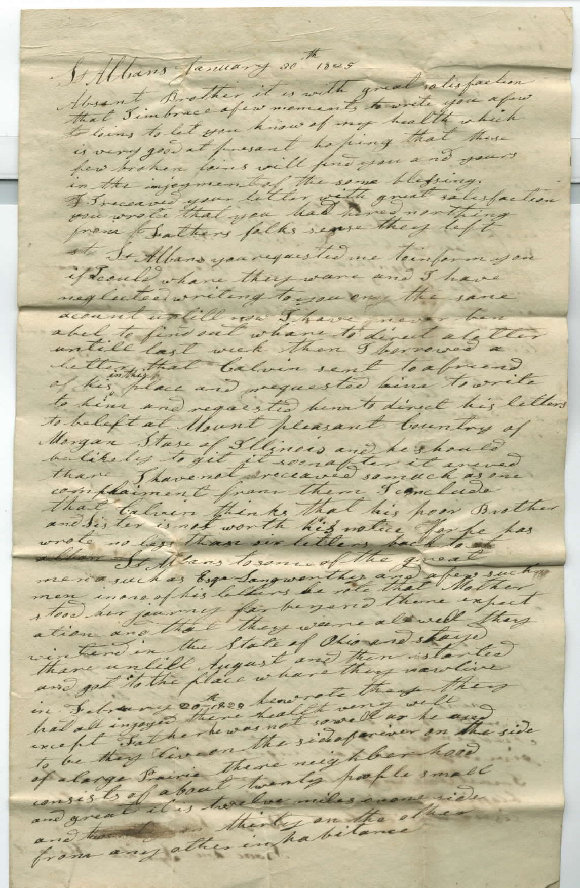 St Albans January 30th 1825
Absant Brother it is with great satisfaction
that I imbrace a few momants to write you a few
loins to let you know of my health which
is very good at presant hoping that these
few broken loins will find you and yours
in the injoyment of the same blessing.
I receaved your letter with great satisfaction
you wrote that you had hered northing
from Fathers folks sense they left
St Albans you requested me to inform you
if I could whare they ware and I have
neglected writing to you on the same
acount untill now I have never ben
abel to find out whare to direct a letter
untill last week then I borrowed a
letter that Calvin sent to a friend
of his in this place and requested him to write
to him and requested him to direct his letters
to be left at Mount pleasant Country of
Morgan State of Illinois and he should
be likely to git it soon after it areved
thare I have not receaved so mach as one
complaiment from them I conclude
that Calvin thinks that his poor Brother
and Sister is not worth his notice
wrote no less than six letters back to
St Albans to some of the great
men such as Esqr and a few such
men in one of his letters he rote that Mother
stood hur journey far beyond there expect
ation and that they ware all well they
wintered in the State of Ohio and stayed
there untill August and then started
and got to the place whare they now live
in February 20th he wrote that they
had all injoyed there health very well
except Father he was not so well as he
to be they live on the side of a river on the side
of a large Prairie there neighbor hood
consists of about twenty people small
and great it is twelve miles on one side
and thirty on the other
from any other inhabitance